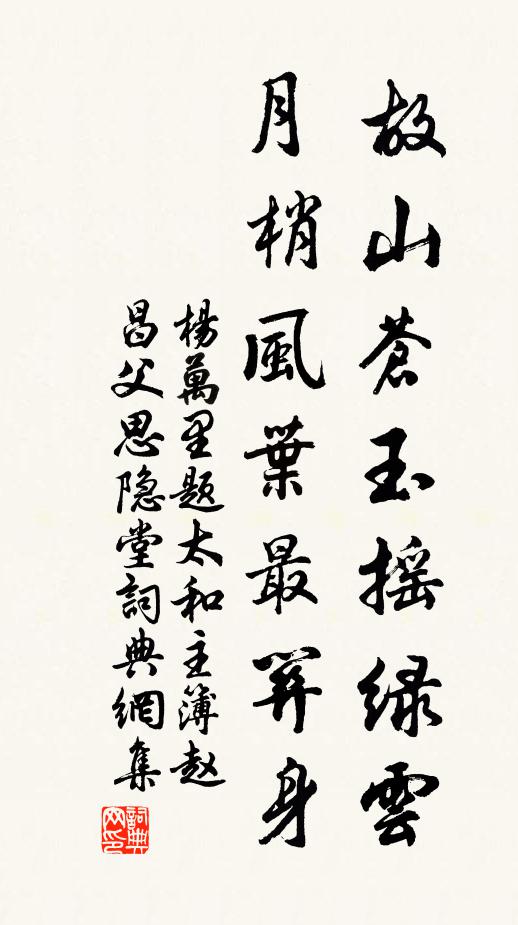 故山蒼玉摇绿雲
月梢風葉最關身
楊萬里题太和主簿赵
昌父思隐堂詞典網集
詞典
网印